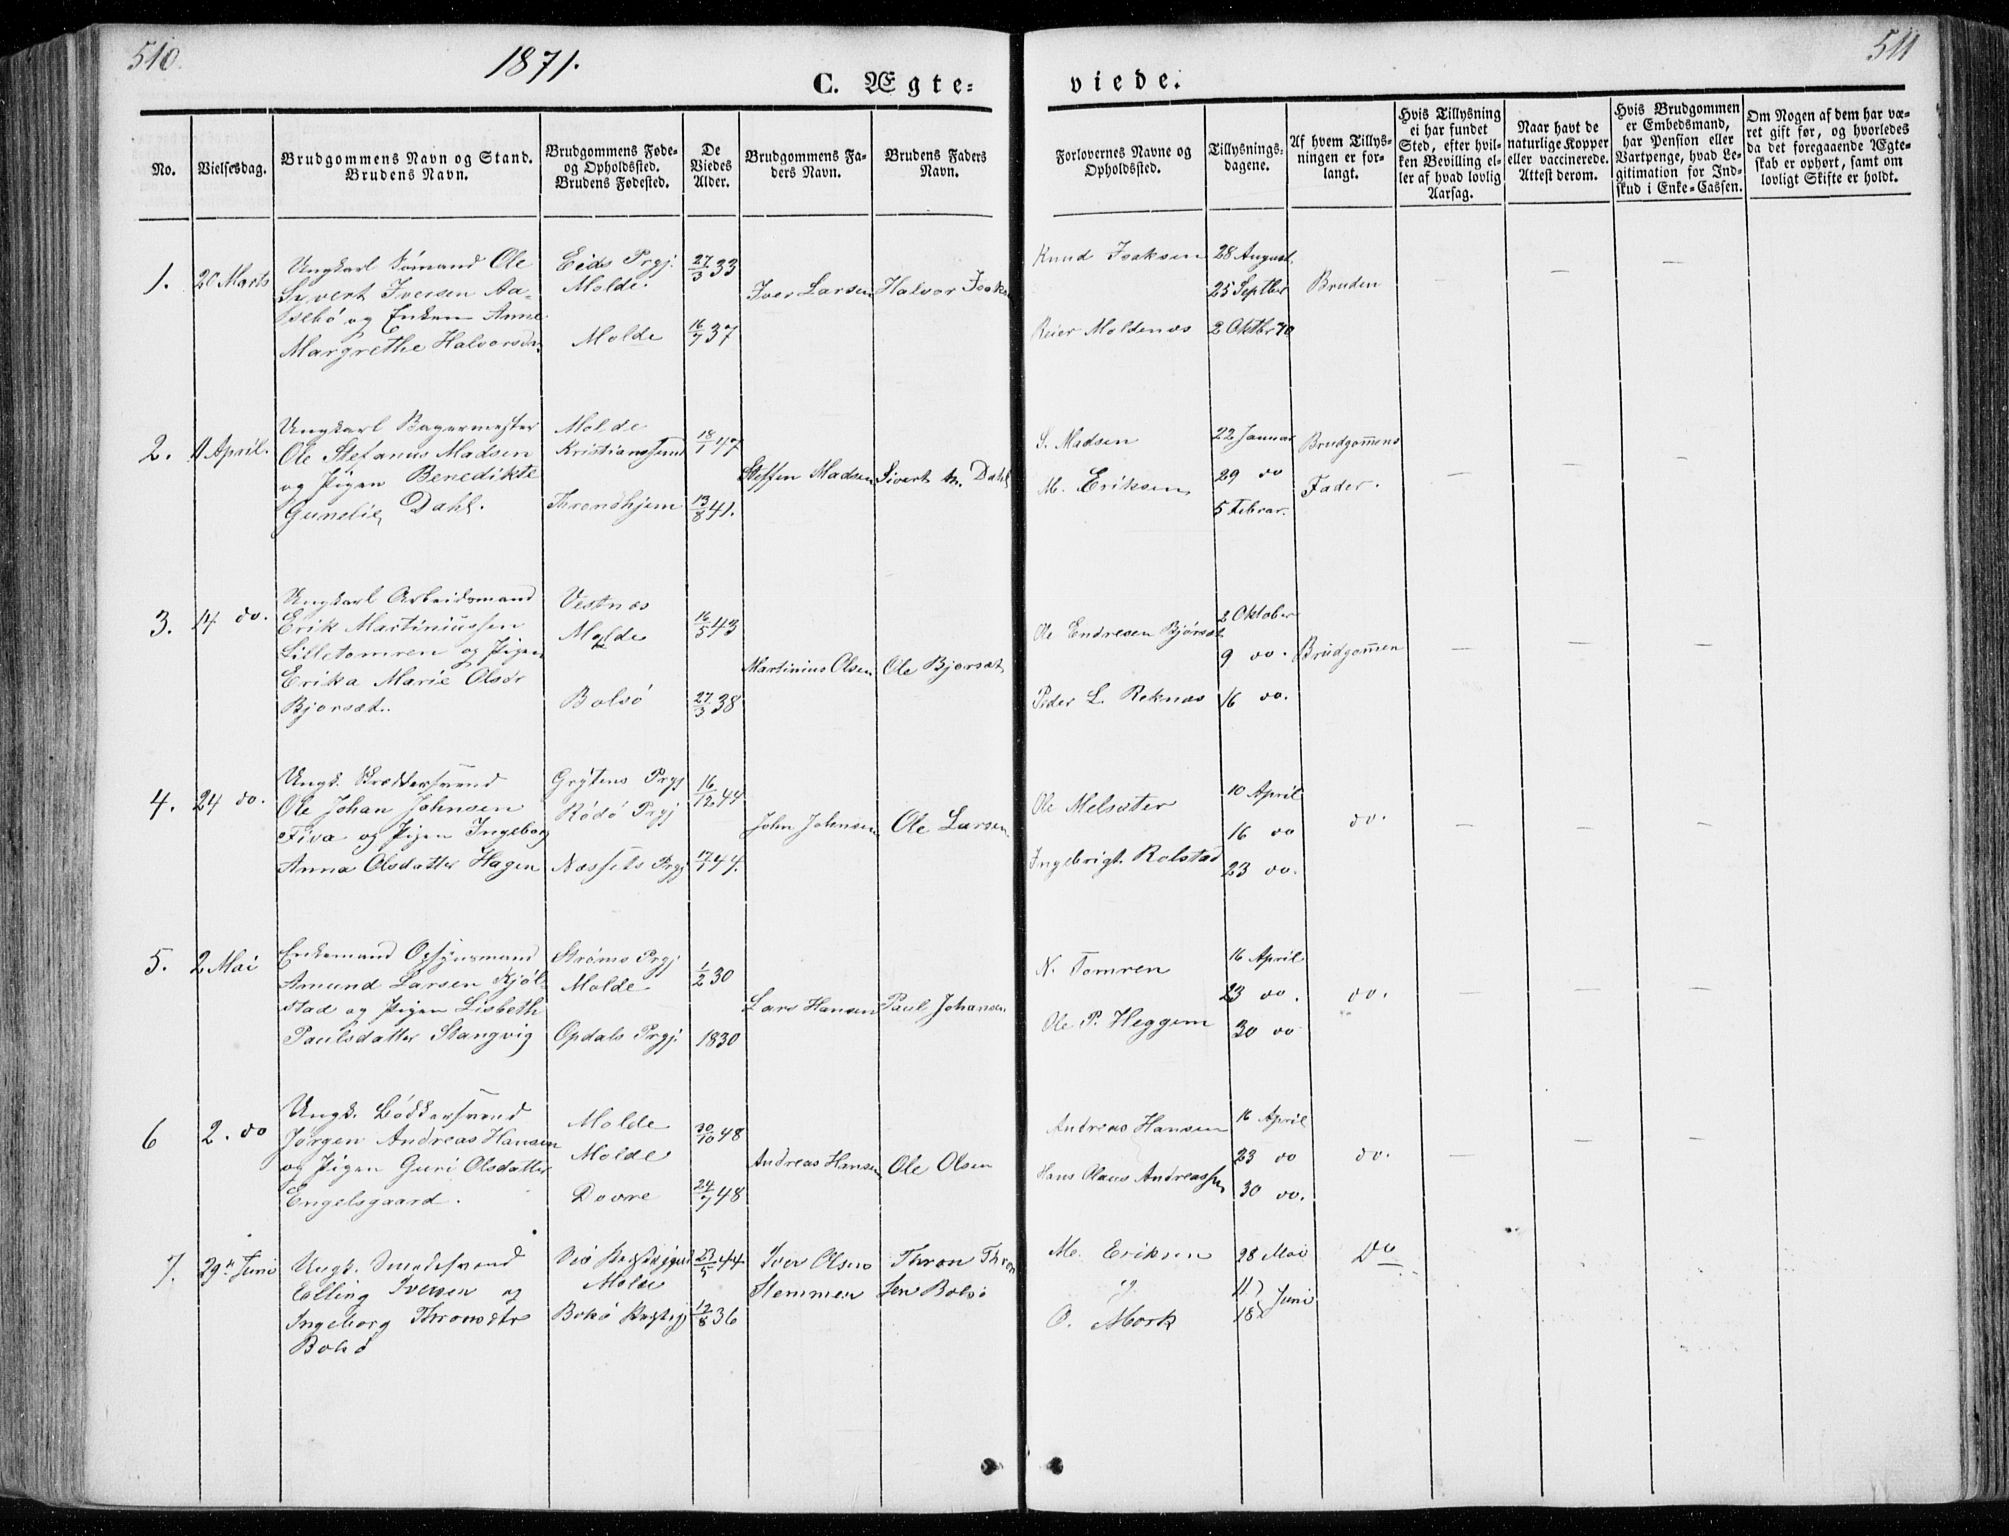 510.
1871.
C. Ægte=
viede.
511
No.
Vielsesdag.
Brudgommens Navn og Stand.
Brudens Navn.
Brudgommens Føde=
og Opholdssted.
Brudens Fødested.
De
Viedes
Alder.
Brudgommens Fa=
ders Navn.
Brudens Faders
Navn.
Forlovernes Navne og
Opholdssted.
Tillysnings=
dagene.
Af hvem Tillys=
ningen er for=
langt.
Hvis Tillysning
ei har fundet
Sted, efter hvil=
ken Bevilling el=
ler af hvad lovlig
Aarsag.
Naar havt de
naturlige Kopper
eller vaccinerede.
Attest derom.
Hvis Brudgommen
er Embedsmand,
har Pension eller
Vartpenge, hvad Le=
gitimation for Ind=
skud i Enke=Cassen.
Om Nogen af dem har væ=
ret gift før, og hvorledes
da det foregaaende Ægte=
skab er ophørt, samt om
lovligt Skifte er holdt.
1.
Marts
Ungkarl Sömand Ole
Syvert Iversen Aa=
sebö og Enken Anne
Margrethe Halvorsdn
Eids Prgj.
Molde.
Molde
27/3 33
16/7 37
Iver Larsen
Halvor Isaks
Knud Isaksen
Reier Moldenæs
28 August.
25 Septbr
2 Oktbr 70
Bruden
2.
11 April.
Ungkarl Bagermester
Ole Stefanus Madsen
og Pigen Benedikte
Gunelie Dahl.
Molde
Kristianssund
Throndhjem
18/1 47
13/8 41.
Steffen Madsen
Sivert M. Dahl
S. Madsen
M. Eriksen
22 Januar
29 do
5 Februar.
Brudgommens
Fader.
3.
14 do.
Ungkarl Arbeidsmand
Erik Martiniussen
Lilletomren og Pigen
Erika Marie Olsdr
Bjorsæt.
Vestnæs
Molde
Bolsö
16/5 43
27/3 38
Martinius Olsen
Ole Bjorsæt
Ole Endresen Bjórsæt
Peder L. Reknæs
2 Oktober
9 do.
16 do.
Brudgommen
4.
24 do.
Ungk. Skræddersvend
Ole Johan Johnsen
Fiva og Pigen Ingeborg
Anna Olsdatter Hagen
Grytens Prgj
Rödö Prgj
Næssets Prgj
16/12 44
17/1 44.
John Johnsen
Ole Larsen
Ole Melsæter
Ingebrigt Rolstad
10 April
16 do
23 do.
do.
5.
2 Mai
Enkemand Opsynsmand
Amund Larsen Kjöl=
stad og Pigen Lisbeth
Paulsdatter Stangvig
Ströms Prgj
Molde
Opdals Prgj.
1/2 30
1830
Lars Hansen
Paul Johansen
N. Tomren
Ole P. Heggem
16 April
23 do.
30 do
do.
6
2. do
Ungk. Bödkersvend
Jørgen Andreas Hansen
og Pigen Guri Olsdatter
Engelsgaard.
Molde
Molde
Dovre
30/10 48
24/7 48
Andreas Hansen
Ole Olsen
Andreas Hansen
Hans Claus Andreassen
16 April
23 do
30 do.
do.
7.
29n Juni
Ungk. Smedesvend
Elling Iversen og
Ingeborg Thronsdtr
Bolsö
Molde
Bolsö Prestegj
23/5 44
12/8 36
Iver Olsen
Stemmen
Thron Thron
sen Bolsö
M. Eriksen
og
O. Mork
28 Mai
11
18 Juni
Do